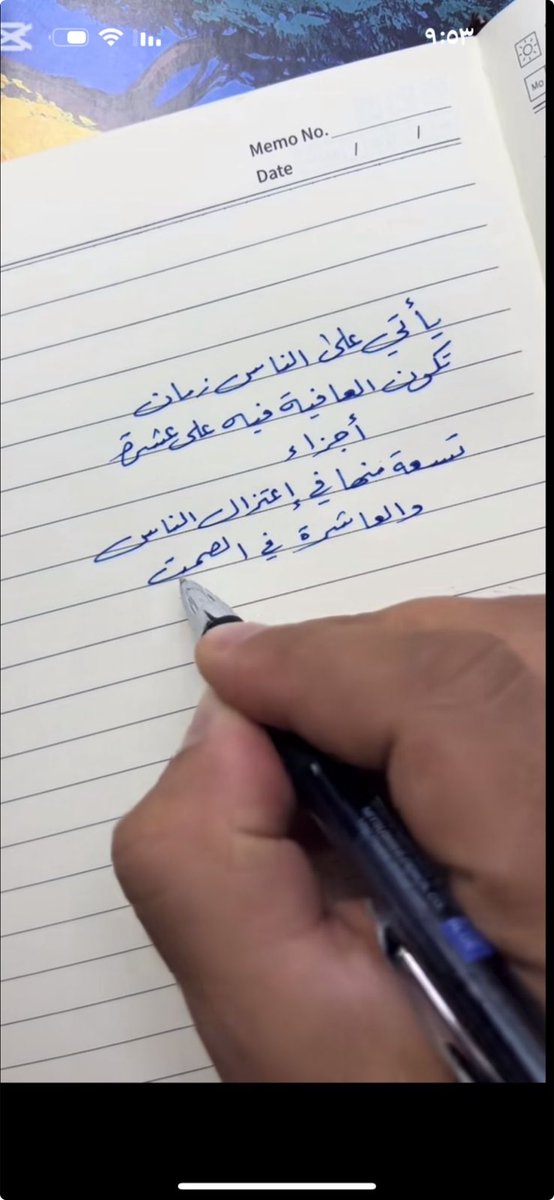 ٩:٥٣
Memo No.
Date / /
Mo
يأتي على الناس زمان
تكون العافية فيه على عشرة
أجزاء
تسعة منها في إعتزال الناس
والعاشرة في الصمت